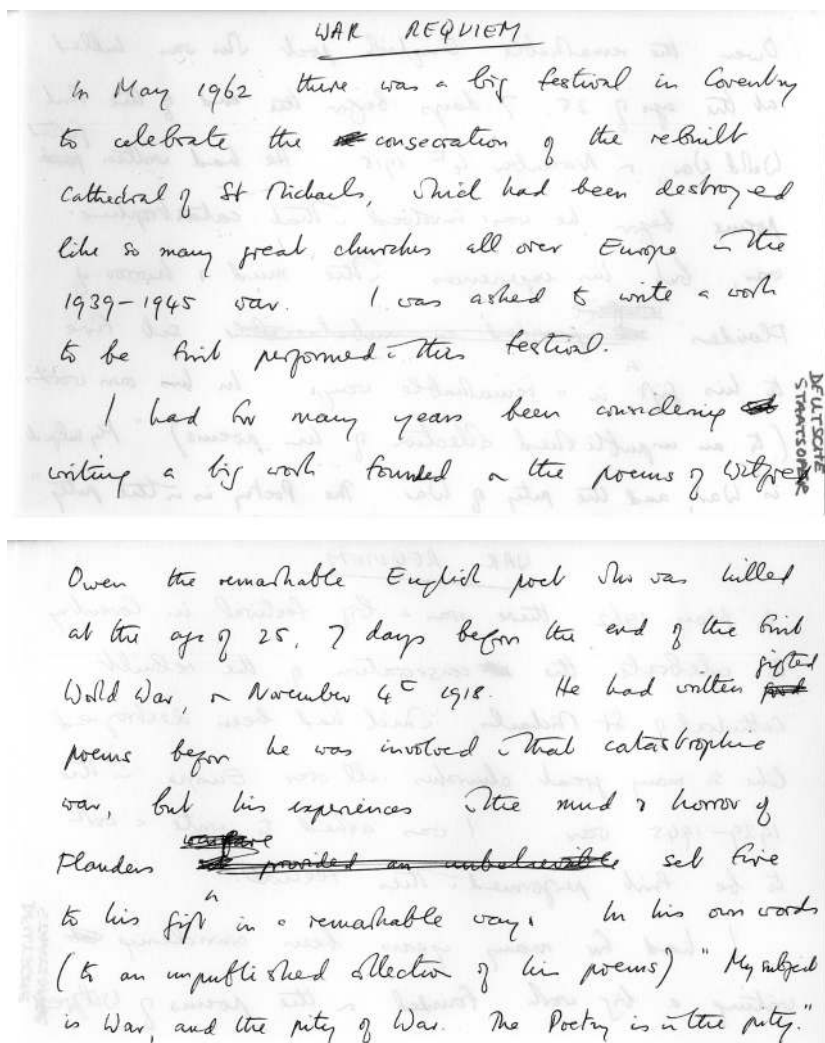 WAR REQUIEM
In May 1962 there was a big festival in Coventry
to celebrate the consecration of the rebuilt
Cathedral of St Michaels, which had been destroyed
like so many great churches all over Europe in the
1939-1945 war. I was asked to write a work
to be first performed in this festival.
I had for many years been considering
writing a big work founded on the poems of Wilfred
DEUTSCHE
STAATSOPER
Owen the remarkable English poet who was killed
at the age of 25, 7 days before the end of the First
World War, on November 4th 1918. He had written gifted
poems before he was involved in that catastrophic
war, but his experiences in the mud & horror of
Flanders warfare provided an unbelievable set fire
to his gift in a remarkable way. In his own words
(to an unpublished collection of his poems) "My subject
is War, and the pity of War. The Poetry is in the pity."